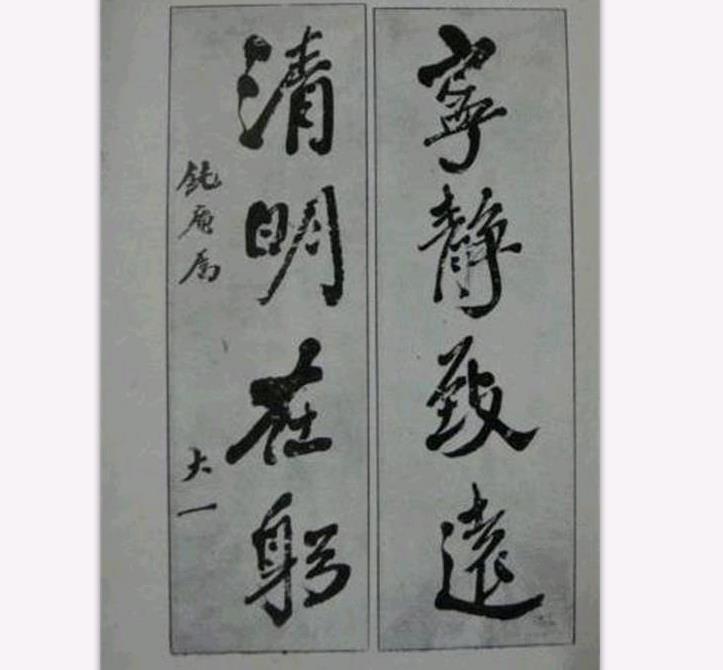 寧靜致遠
清明在躬
鈍庵属
大一